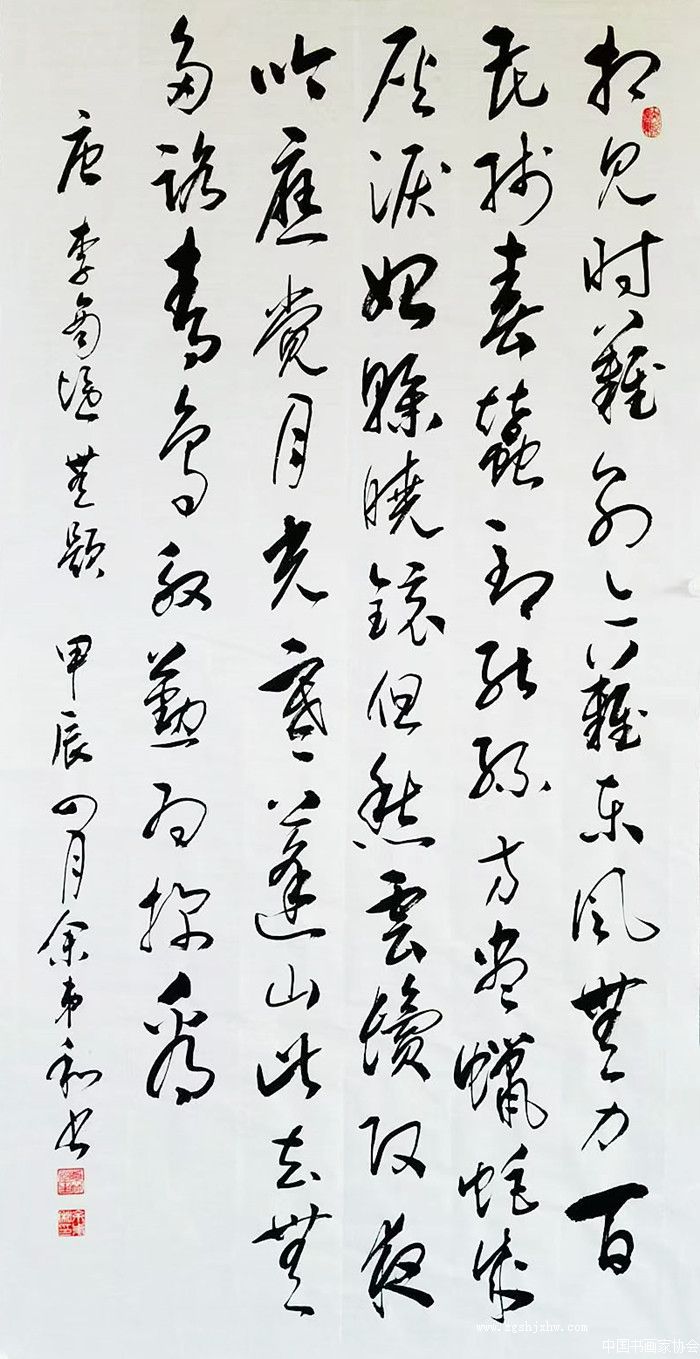 相见时難别亦難东风無力百
花残春蠶到死丝方尽蠟炬成
灰淚始乾曉鏡但愁雲鬢改夜
吟應觉月光寒蓬山此去無
多路青鸟殷勤为探看
唐李商隱無题 甲辰四月余和书
www.zgshjxhw.com
中国书画家协会